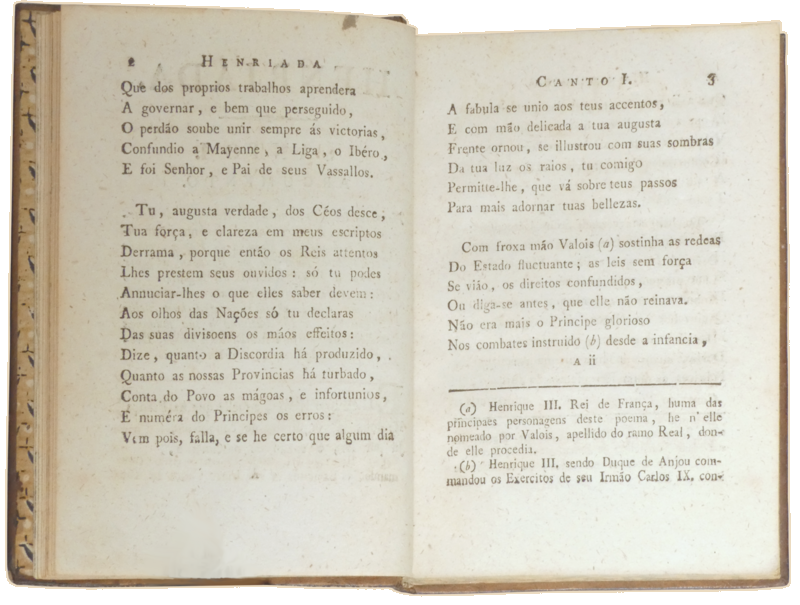 2 HENRIADA
Que dos proprios trabalhos aprendera
A governar, e bem que perseguido,
O perdão soube unir sempre ás victorias,
Confundio a Mayenne, a Liga, o Ibéro,
E foi Senhor, e Pai de seus Vassallos.
Tu, augusta verdade, dos Céos desce,
Tua força, e clareza em meus escriptos
Derrama, porque então os Reis attentos
Lhes prestem seus ouvidos: só tu podes
Annuciar-lhes o que elles saber devem:
Aos olhos das Nações só tu declaras
Das suas divisoens os máos effeitos:
Dize, quanto a Discordia há produzido,
Quanto as nossas Provincias há turbado,
Conta do Povo as mágoas, e infortunios,
E numéra do Principes os erros:
Vem pois, falla, e se he certo que algum dia
CANTO I. 3
A fabula se unio aos teus accentos,
E com mão delicada a tua augusta
Frente ornou, se illustrou com suas sombras
Da tua luz os raios, tu comigo
Permitte-lhe, que vá sobre teus passos
Para mais adornar tuas bellezas.
Com froxa mão Valois (a) sostinha as redeas
Do Estado fluctuante; as leis sem força
Se vião, os direitos confundidos,
Ou diga-se antes, que elle não reinava.
Não era mais o Principe glorioso
Nos combates instruido (b) desde a infancia,
A ii
(a) Henrique III. Rei de França, huma das
principaes personagens deste poema, he n'elle
nomeado por Valois, apellido do ramo Real, don-
de elle procedia.
(b) Henrique III. sendo Duque de Anjou com-
mandou os Exercitos de seu Irmão Carlos IX. con-